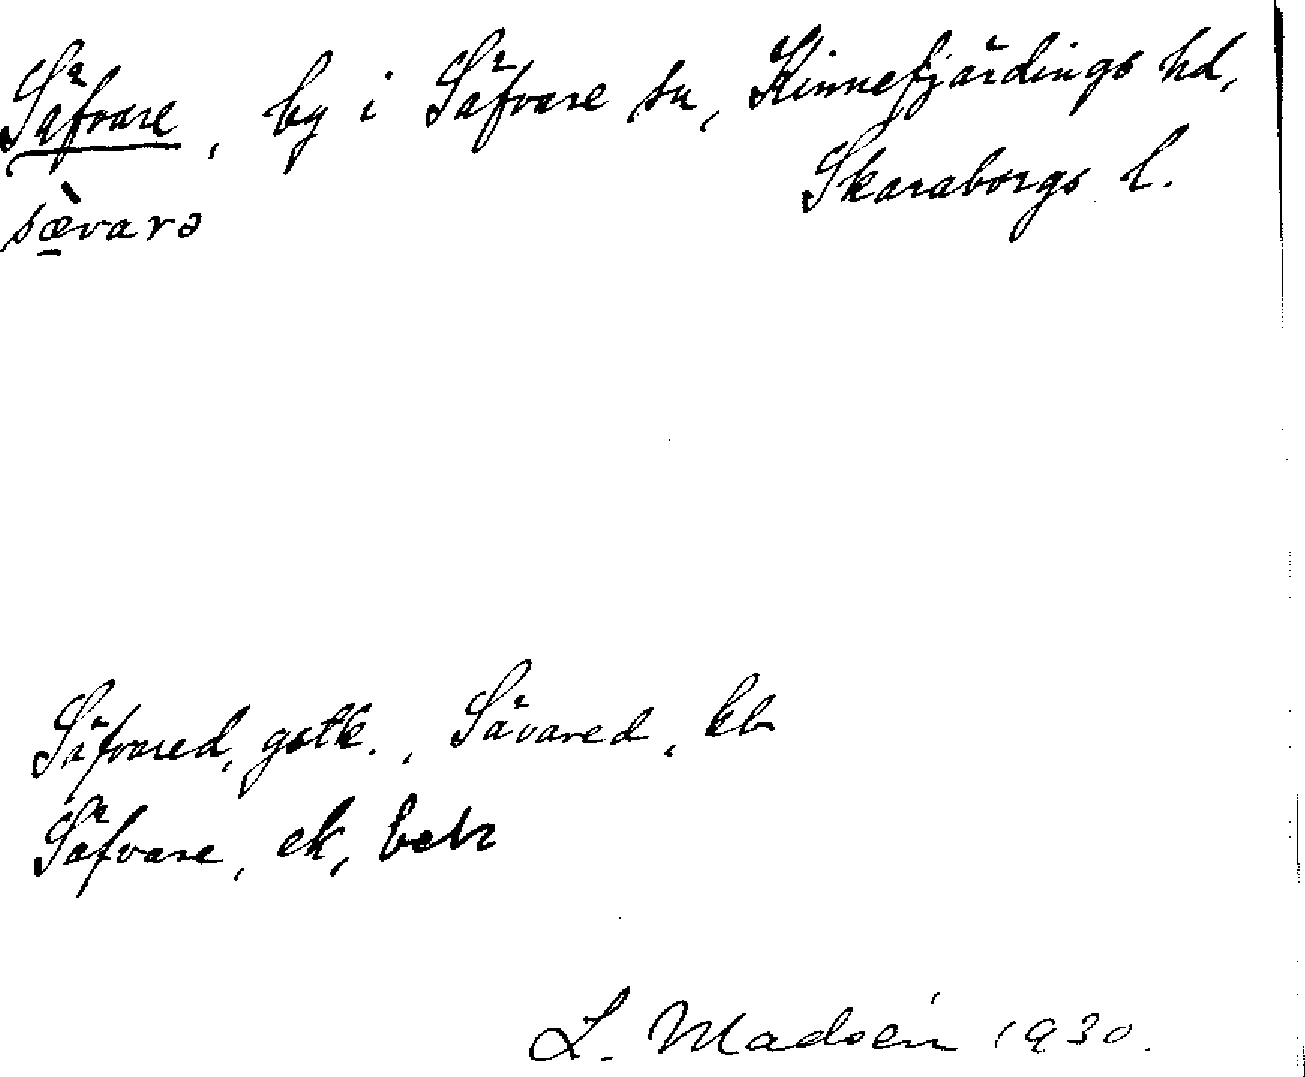 Säfvare, by i Säfvare sn, Kinnefjärdings hd,
Skaraborgs l.
sæ̀varə
Säfvared, gstk., Sävared, kb
Säfvare, ek,
L. Madsén 1930.